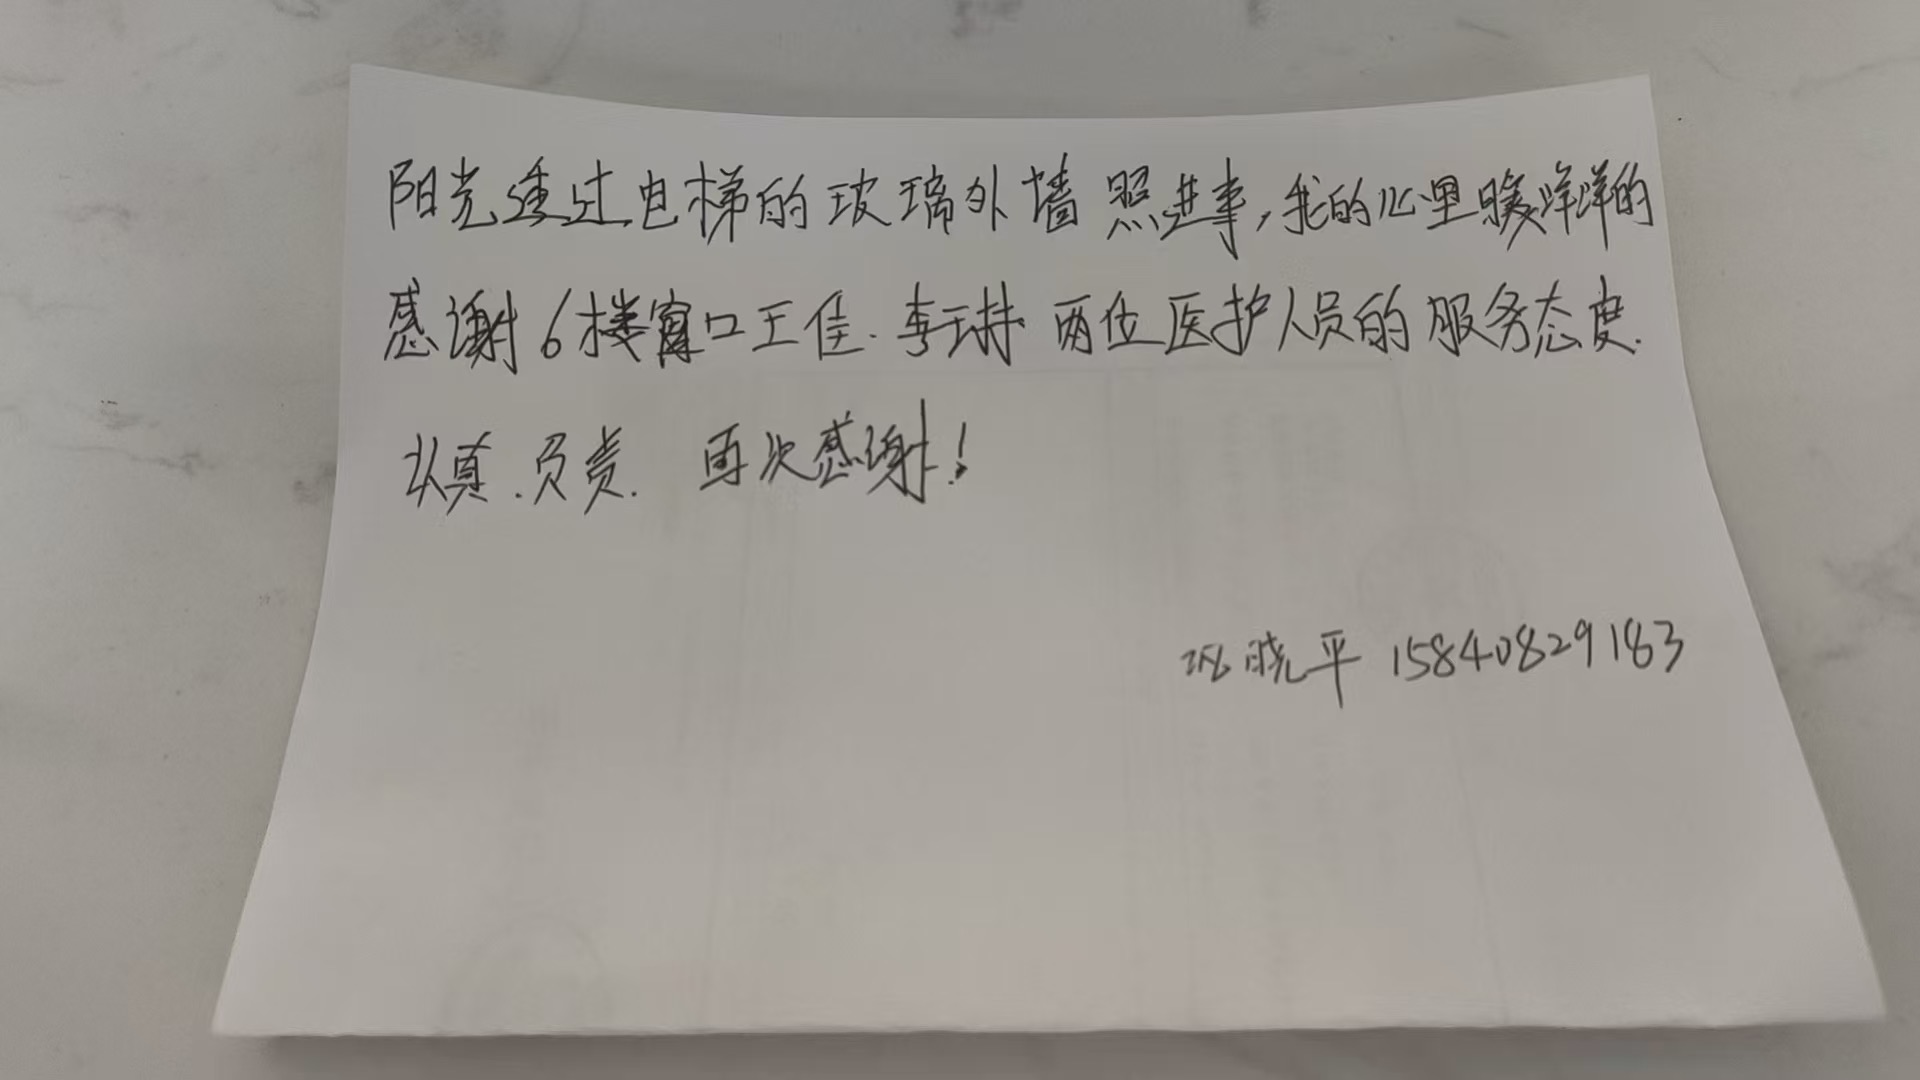 阳光透过电梯的玻璃外墙照进事,我的心里暖洋洋的
感谢6楼窗口王佳.李琳两位医护人员的服务态度.
认真.负责. 再次感谢!
晓平 15840829183